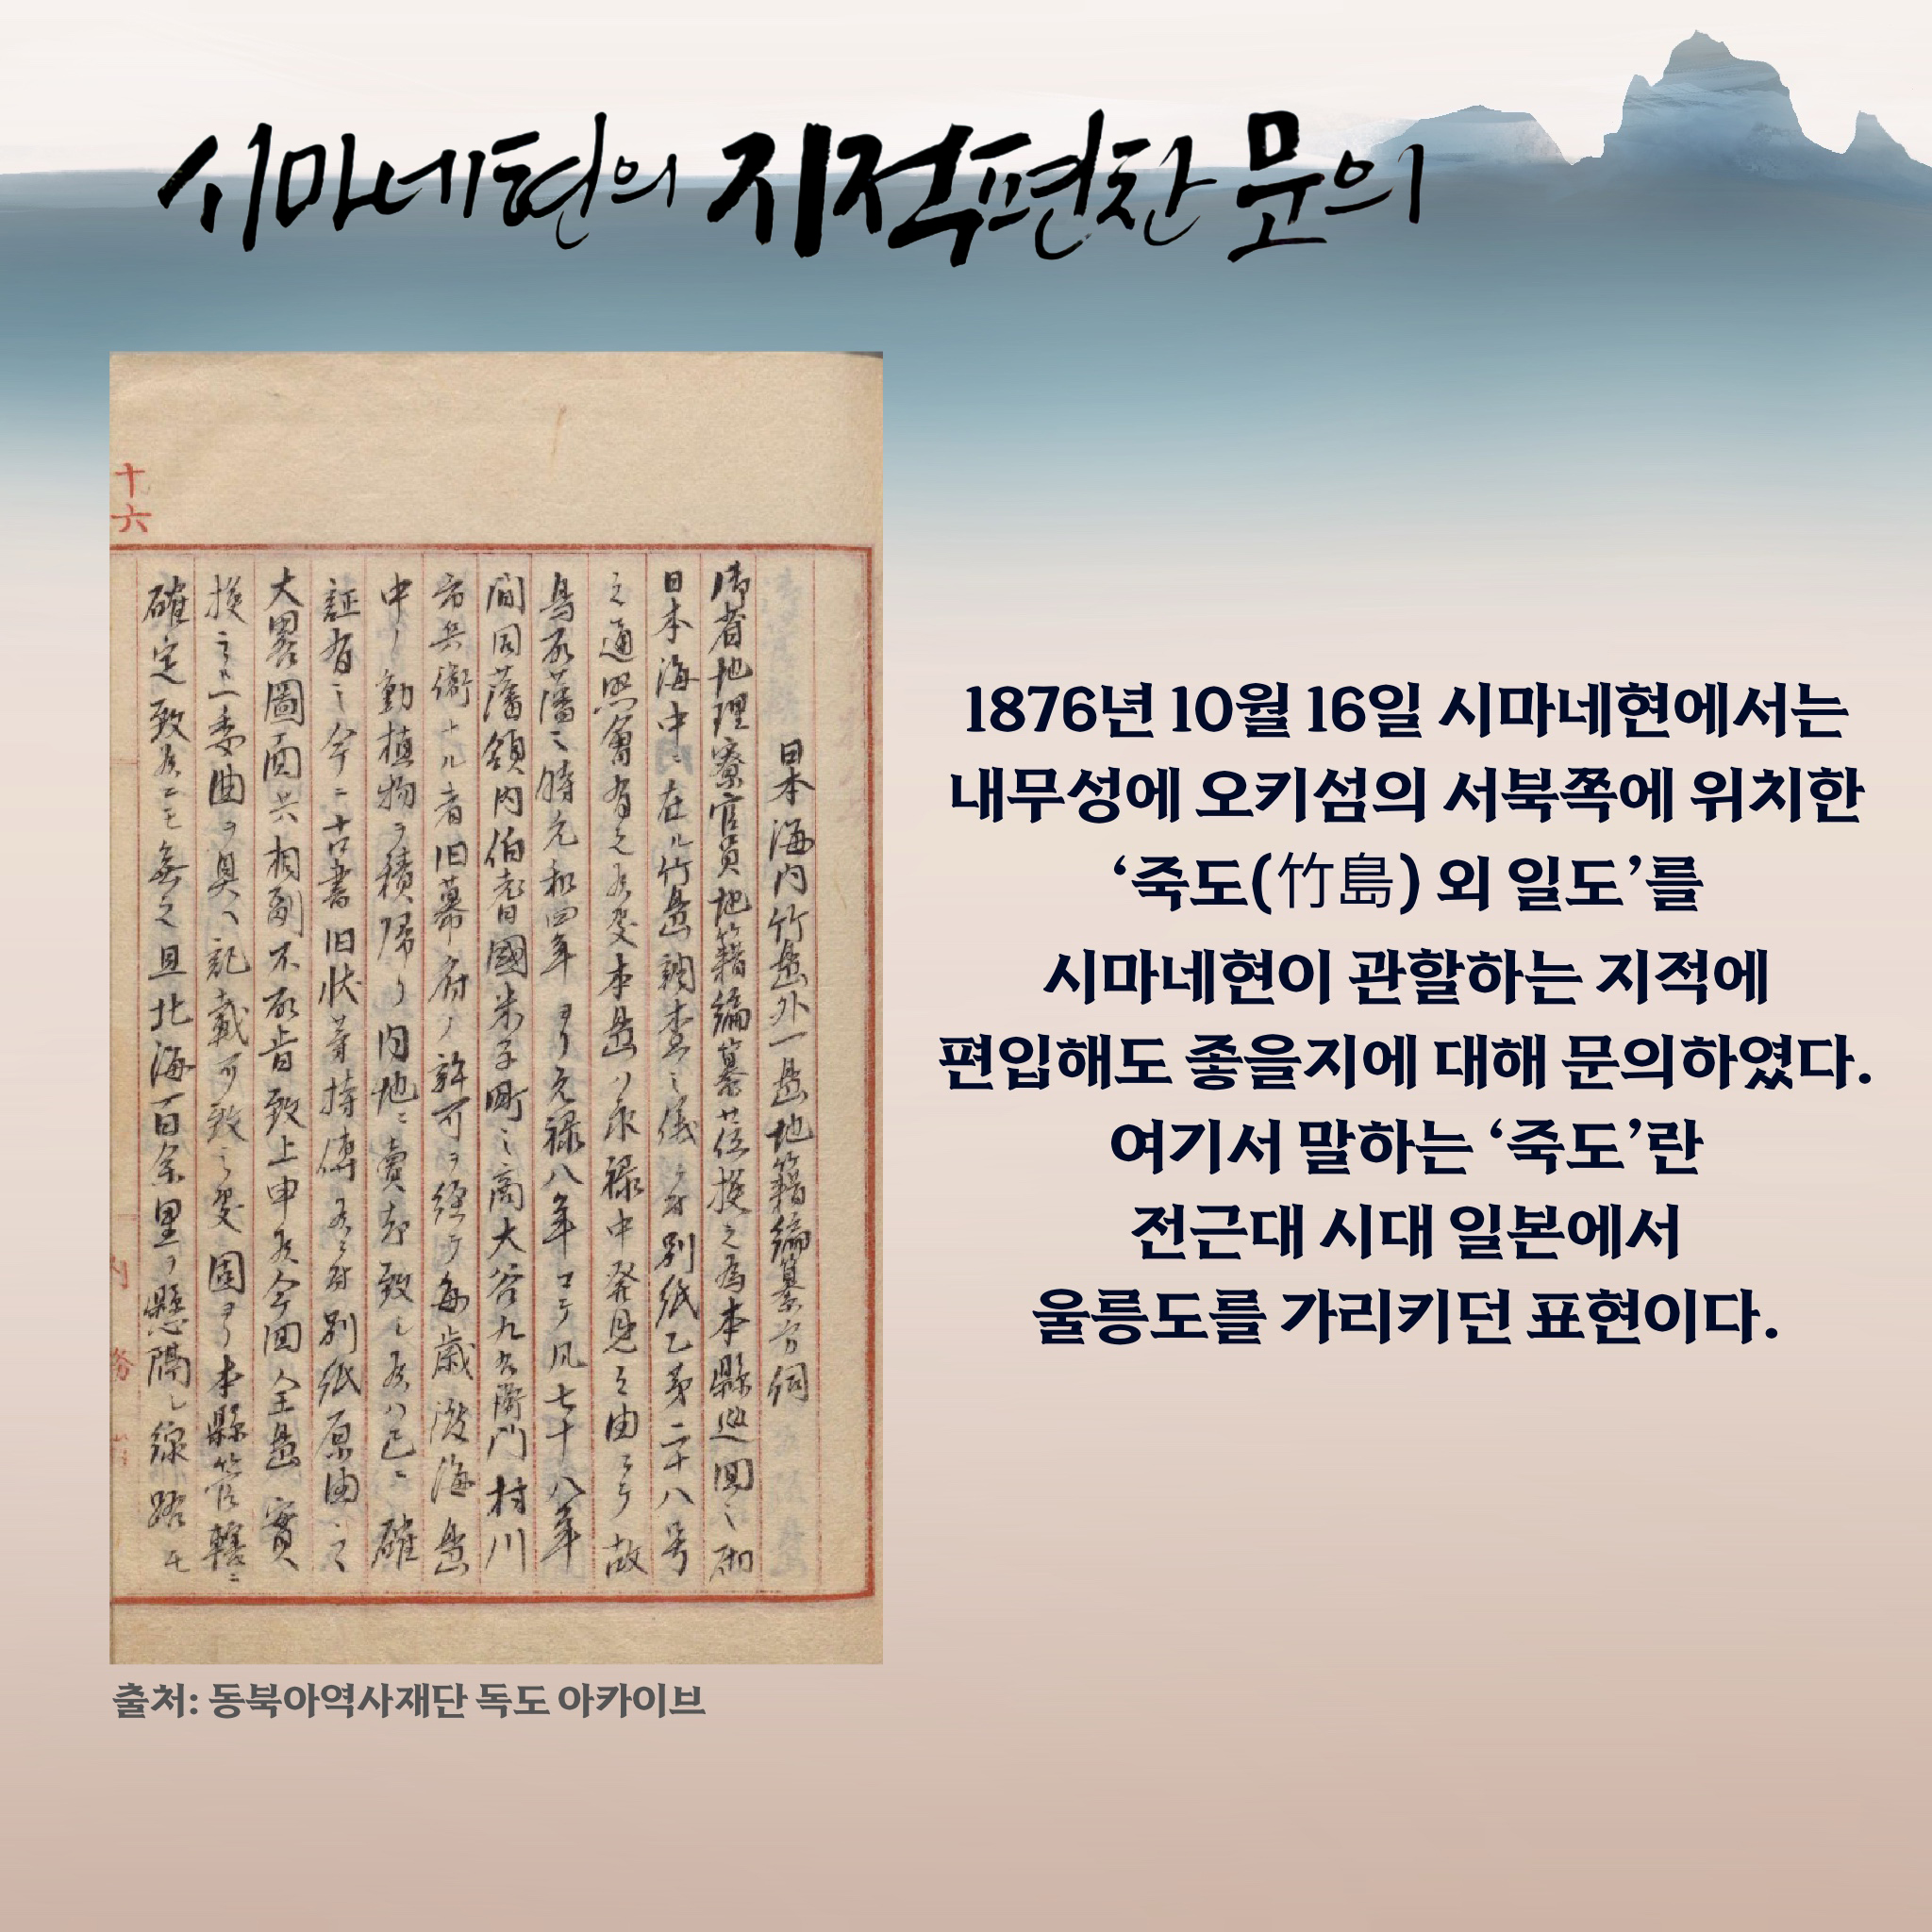 시마네현의 지적편찬 문의
十六
日本海内竹島外一島地籍編纂方伺
御省地理寮官員地籍編纂莅検之為本縣巡回之砌
日本海中ニ在ル竹島調査之儀ニ付別紙乙第二十八号
之通照會有之候処本島ハ永禄中発見之由ニテ故
鳥取藩之時元和四年ヨリ元禄八年マテ凡七十八年
間同藩領内伯耆國米子町之商大谷九右衛門村川
市兵衛ナル者旧幕府ノ許可ヲ経テ毎歳渡海島
中ノ動植物ヲ積帰リ内地ニ賣却致シ候ハ已ニ確
証有之今ニ古書旧状等持傳候ニ付別紙原由之
大畧圖面共相副不取肯致上申候今回全島實
検之上委曲ヲ具ヘ記載可致之処固ヨリ本縣管轄ニ
確定致候ニモ無之且北海百余里ヲ懸隔シ線路モ
1876년 10월 16일 시마네현에서는
내무성에 오키섬의 서북쪽에 위치한
‘죽도(竹島) 외 일도’를
시마네현이 관할하는 지적에
편입해도 좋을지에 대해 문의하였다.
여기서 말하는 ‘죽도’란
전근대 시대 일본에서
울릉도를 가리키던 표현이다.
출처: 동북아역사재단 독도 아카이브